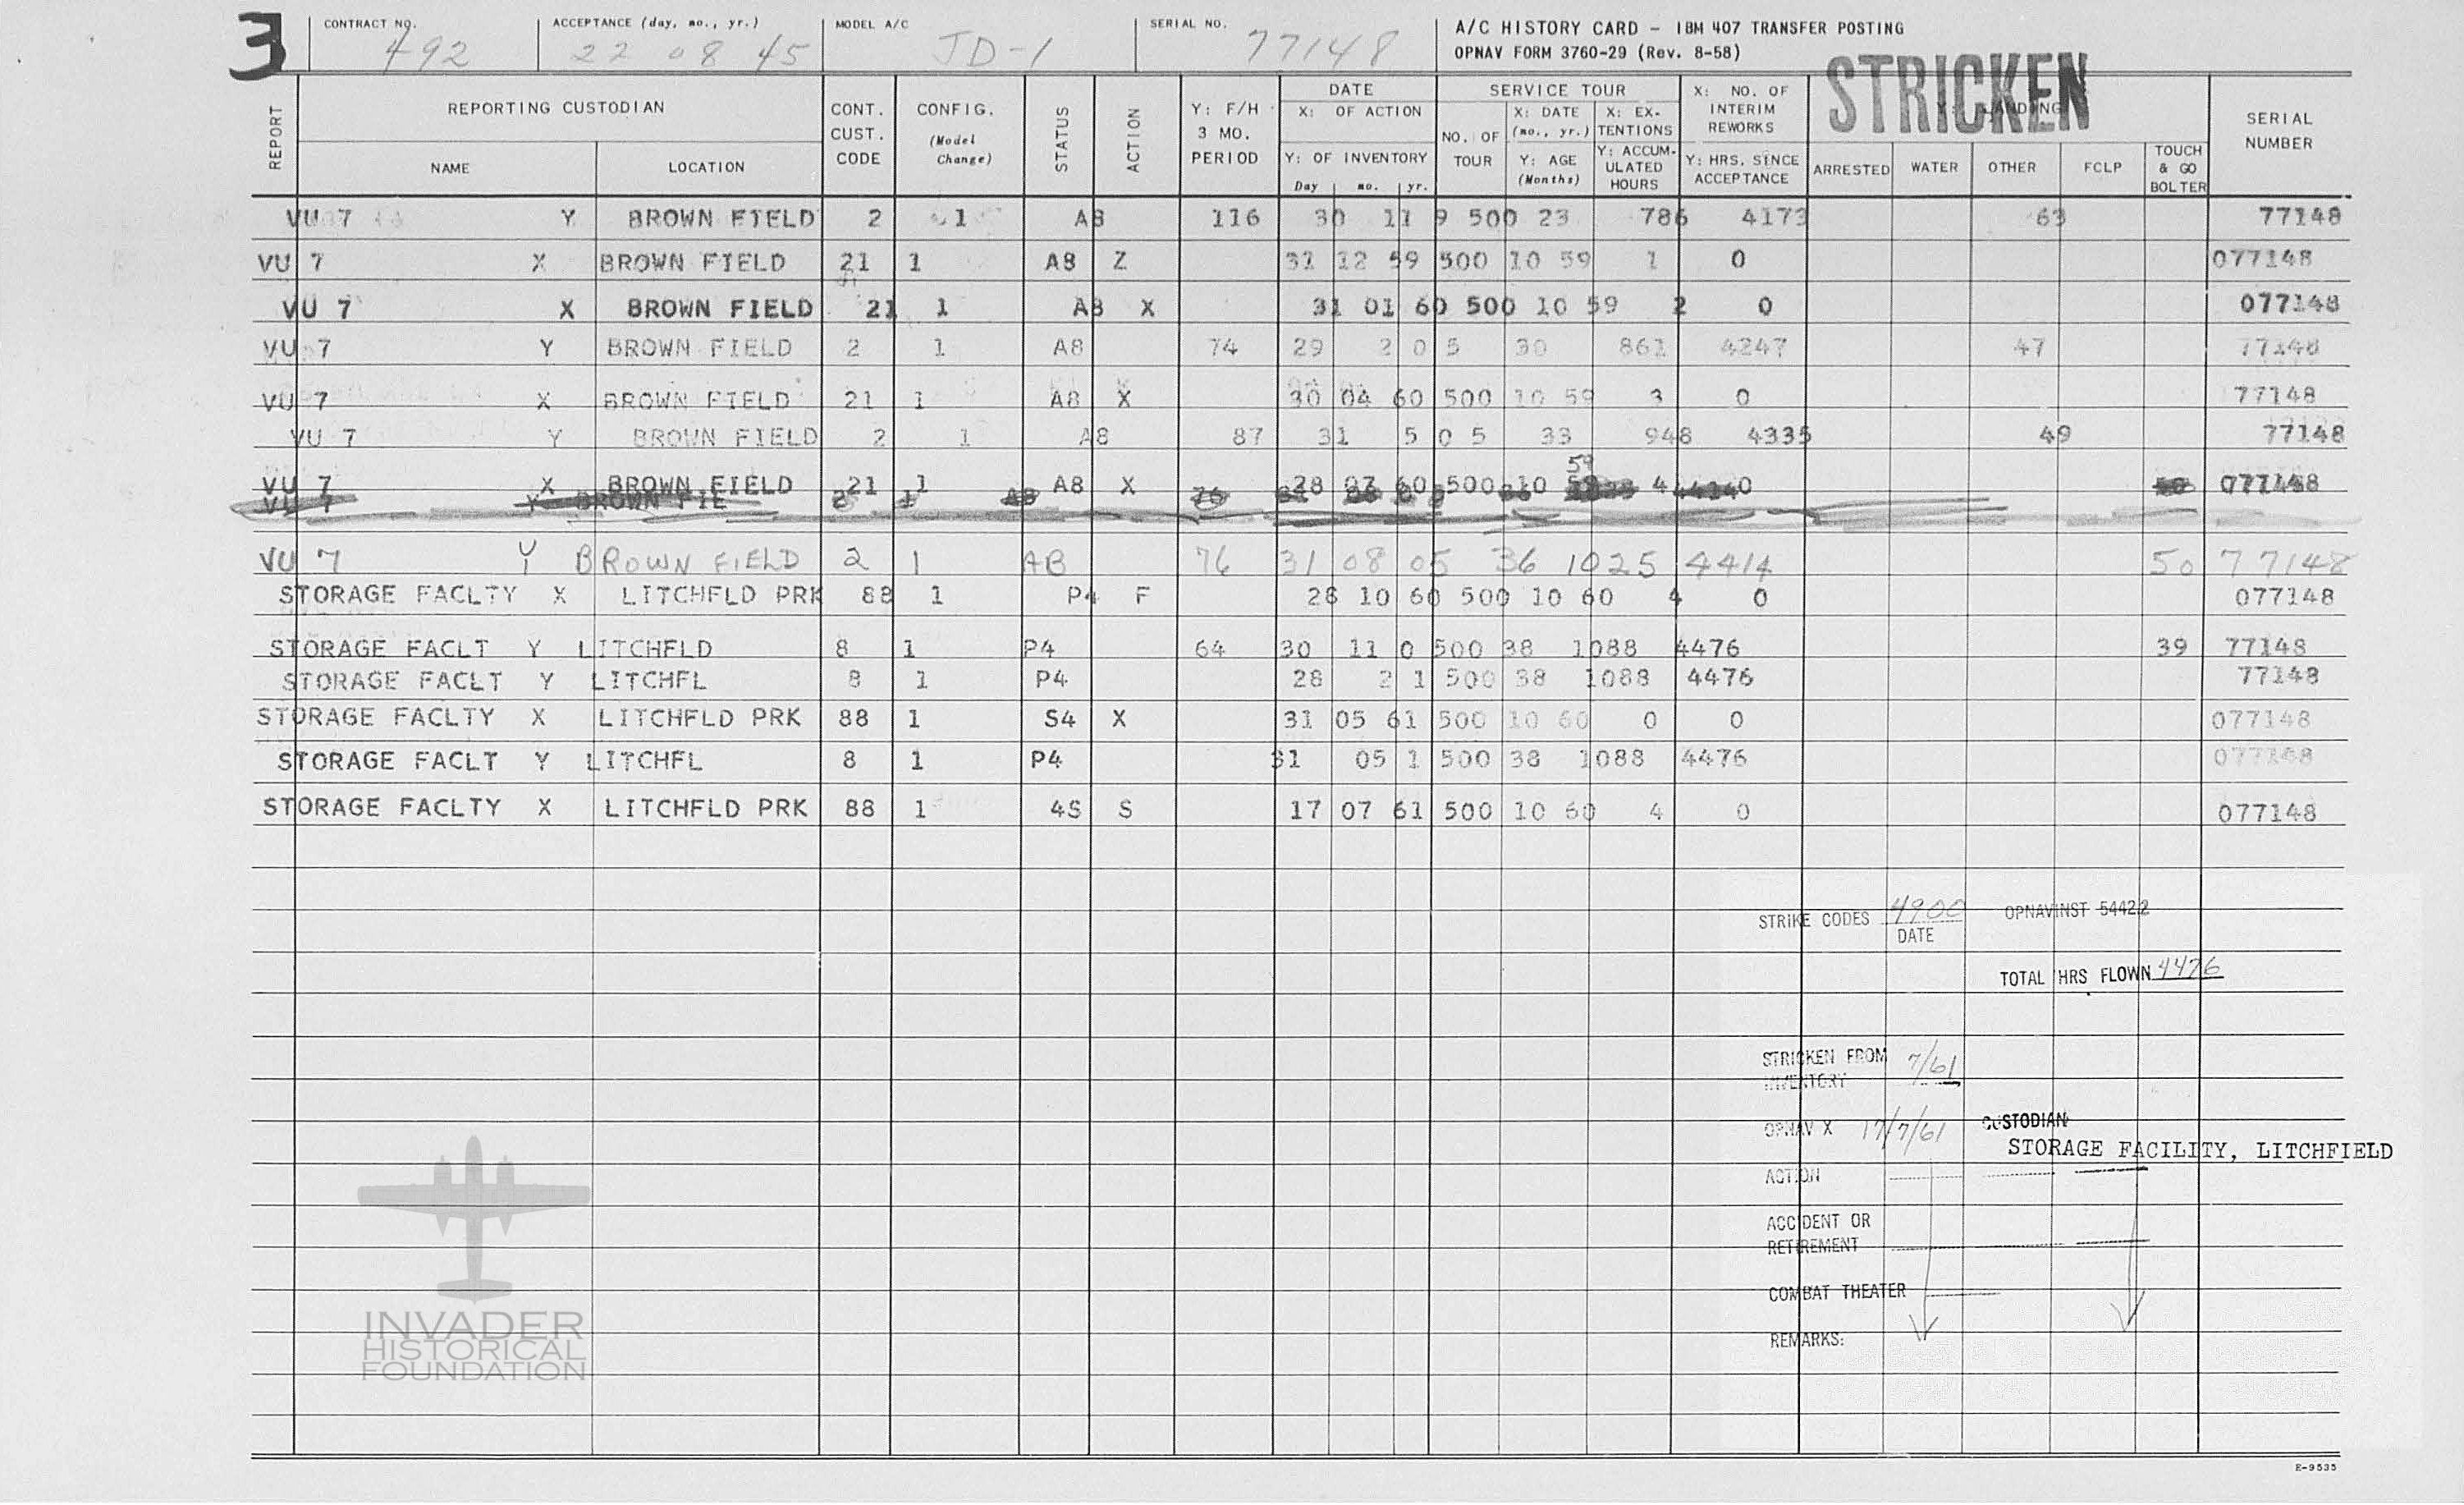 3
CONTRACT NO. ACCEPTANCE (day, mo., yr.) MODEL A/C SERIAL NO. A/C HISTORY CARD - IBM 407 TRANSFER POSTING
492 22 08 45 JD-1 77148 OPNAV FORM 3760-29 (Rev. 8-58)
STRICKEN
REPORT REPORTING CUSTODIAN NAME LOCATION CONT. CUST. CODE CONFIG. (Model Change) STATUS ACTION Y: F/H 3 MO. PERIOD DATE X: OF ACTION Y: OF INVENTORY Day mo. yr. SERVICE TOUR NO. OF TOUR X: DATE (mo., yr.) Y: AGE (Months) X: EX-TENTIONS Y: ACCUM-ULATED HOURS X: NO. OF INTERIM REWORKS Y: HRS. SINCE ACCEPTANCE ARRESTED WATER OTHER FCLP TOUCH & GO BOLTER SERIAL NUMBER
VU 7 Y BROWN FIELD 2 1 A8 116 30 11 9 500 23 786 4173 63 77148
VU 7 X BROWN FIELD 21 1 A8 Z 31 12 59 500 10 59 1 0 077148
VU 7 X BROWN FIELD 21 1 A8 X 31 01 60 500 10 59 2 0 077148
VU 7 Y BROWN FIELD 2 1 A8 74 29 2 0 5 30 861 4247 47 77148
VU 7 X BROWN FIELD 21 1 A8 X 30 04 60 500 10 59 3 0 77148
VU 7 Y BROWN FIELD 2 1 A8 87 31 5 0 5 33 948 4335 49 77148
59
VU 7 X BROWN FIELD 21 1 A8 X 28 07 60 500 10 4 0 077148
VU 7 Y BROWN FIE 2 1 A8 76
VU 7 Y BROWN FIELD 2 1 AB 76 31 08 05 36 1025 4414 50 77148
STORAGE FACLTY X LITCHFLD PRK 88 1 P4 F 28 10 60 500 10 60 4 0 077148
STORAGE FACLT Y LITCHFLD 8 1 P4 64 30 11 0 500 38 1088 4476 39 77148
STORAGE FACLT Y LITCHFL 8 1 P4 28 2 1 500 38 1088 4476 77148
STORAGE FACLTY X LITCHFLD PRK 88 1 S4 X 31 05 61 500 10 60 0 0 077148
STORAGE FACLT Y LITCHFL 8 1 P4 31 05 1 500 38 1088 4476 077148
STORAGE FACLTY X LITCHFLD PRK 88 1 4S S 17 07 61 500 10 60 4 0 077148
STRIKE CODES 4900 OPNAVINST 5442.2
DATE
TOTAL HRS FLOWN 4476
STRICKEN FROM 7/61
INVENTORY
OPNAV X 17/7/61 CUSTODIAN
STORAGE FACILITY, LITCHFIELD
ACTION
ACCIDENT OR
RETIREMENT
COMBAT THEATER
REMARKS:
INVADER
HISTORICAL
FOUNDATION
E-9535